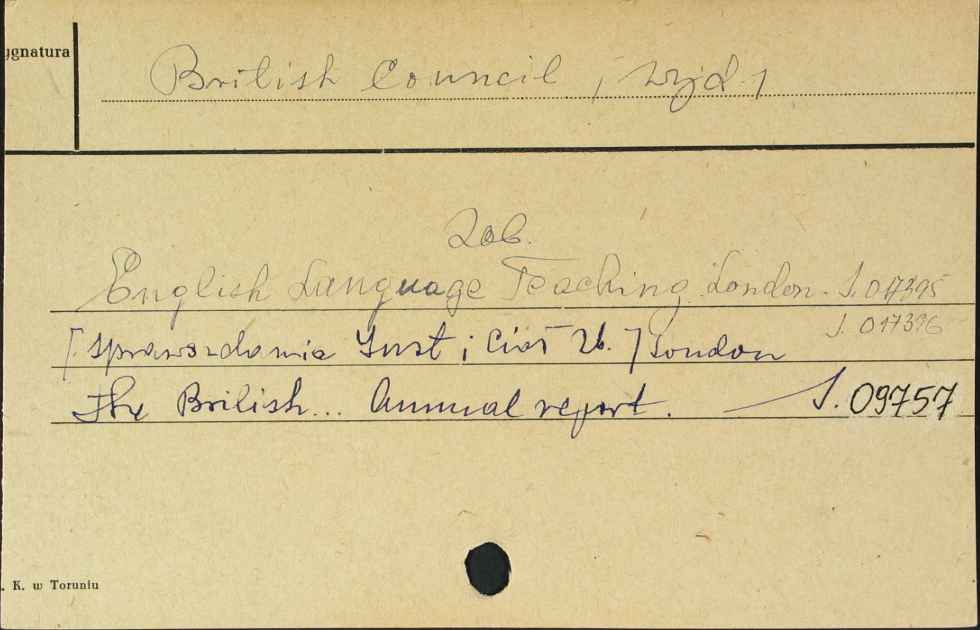 ygnatura
British Council ; wyd ;
Zob.
English Language Teaching. London. J. 017395
J. 017396
[Sprawozdania Inst i Ciał Zb.] London
The British... Annual report. J. 09757
. K. w Toruniu